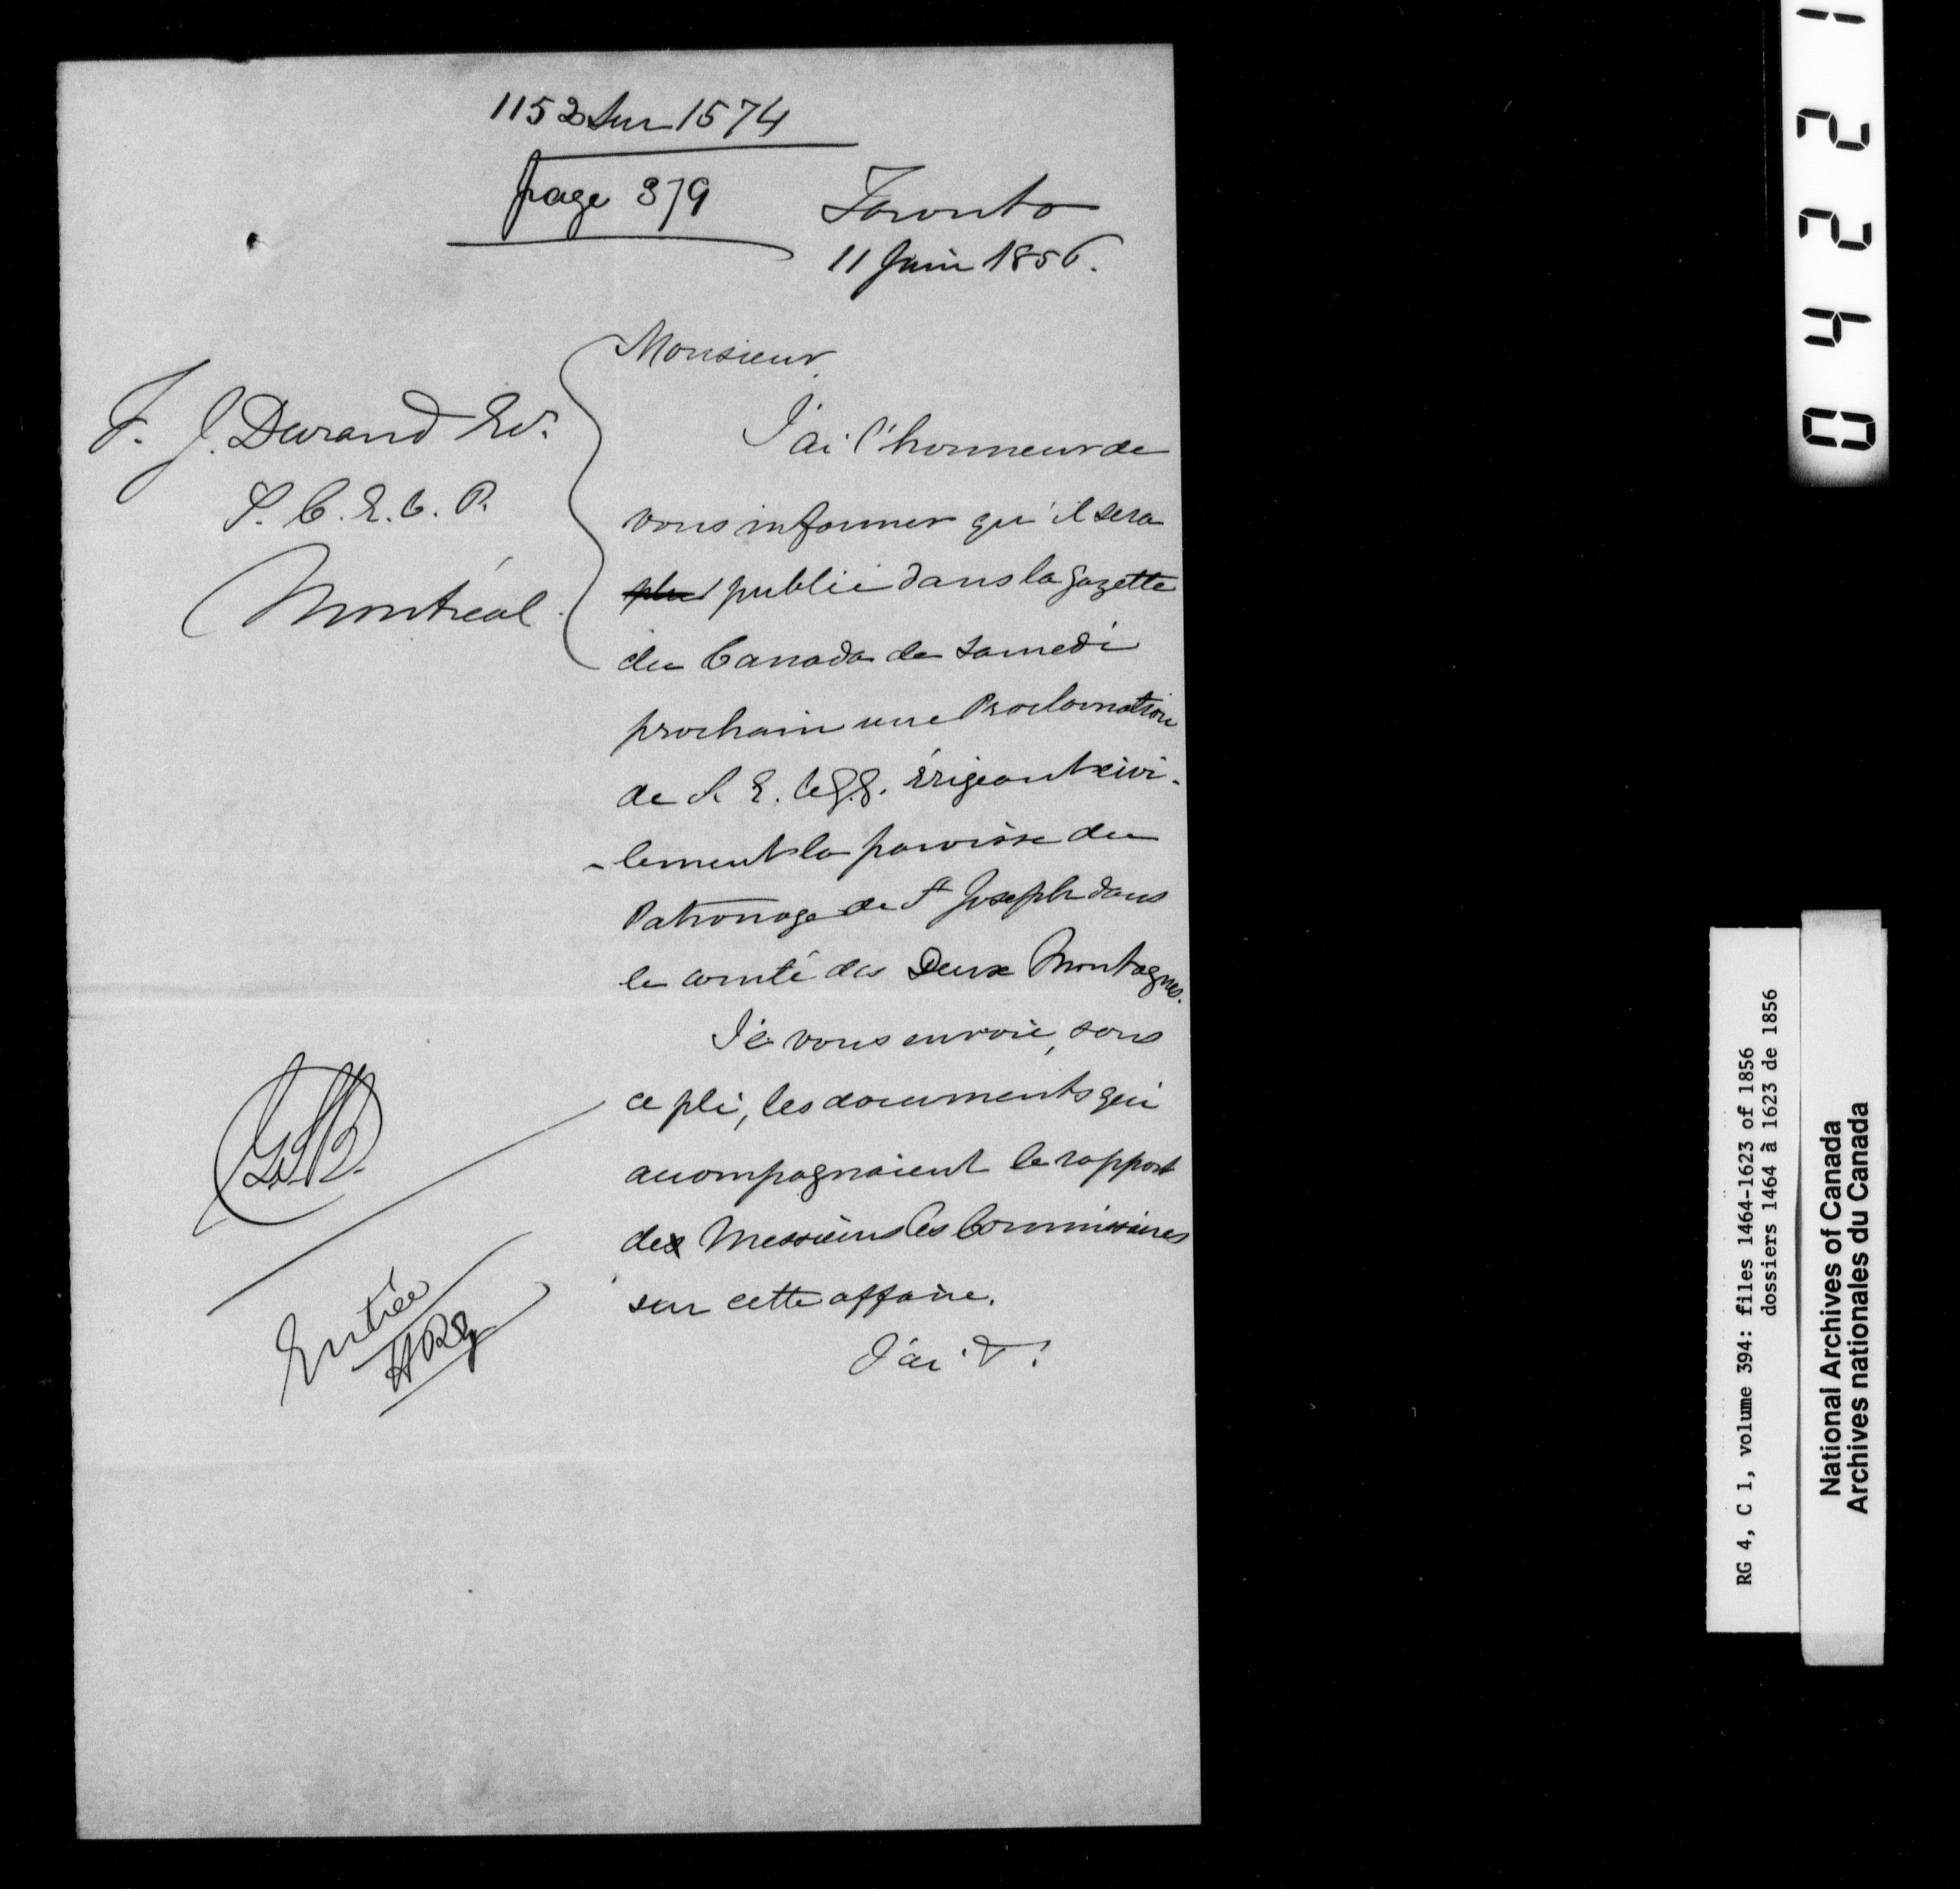 1152 sur 1574
page 379
Toronto
11 Juin 1856.
Monsieur,
F. J. Durand Ecr.
S. C. E. C. P.
Montréal
J'ai l'honneur de
vous informer qu'il sera
publié dans la gazette
du Canada de samedi
prochain une Proclamation
de S. E. le G. G. érigeant civi-
-lement la paroisse du
Patronage de St Joseph dans
le comté des Deux Montagnes.
Je vous envoie, sous
ce pli, les documents qui
accompagnaient le rapport
de Messieurs les Commissaires
sur cette affaire.
J'ai &.
Entrée
0 4 2 2 1
RG 4, C 1, volume 394: files 1464-1623 of 1856
dossiers 1464 à 1623 de 1856
National Archives of Canada
Archives nationales du Canada